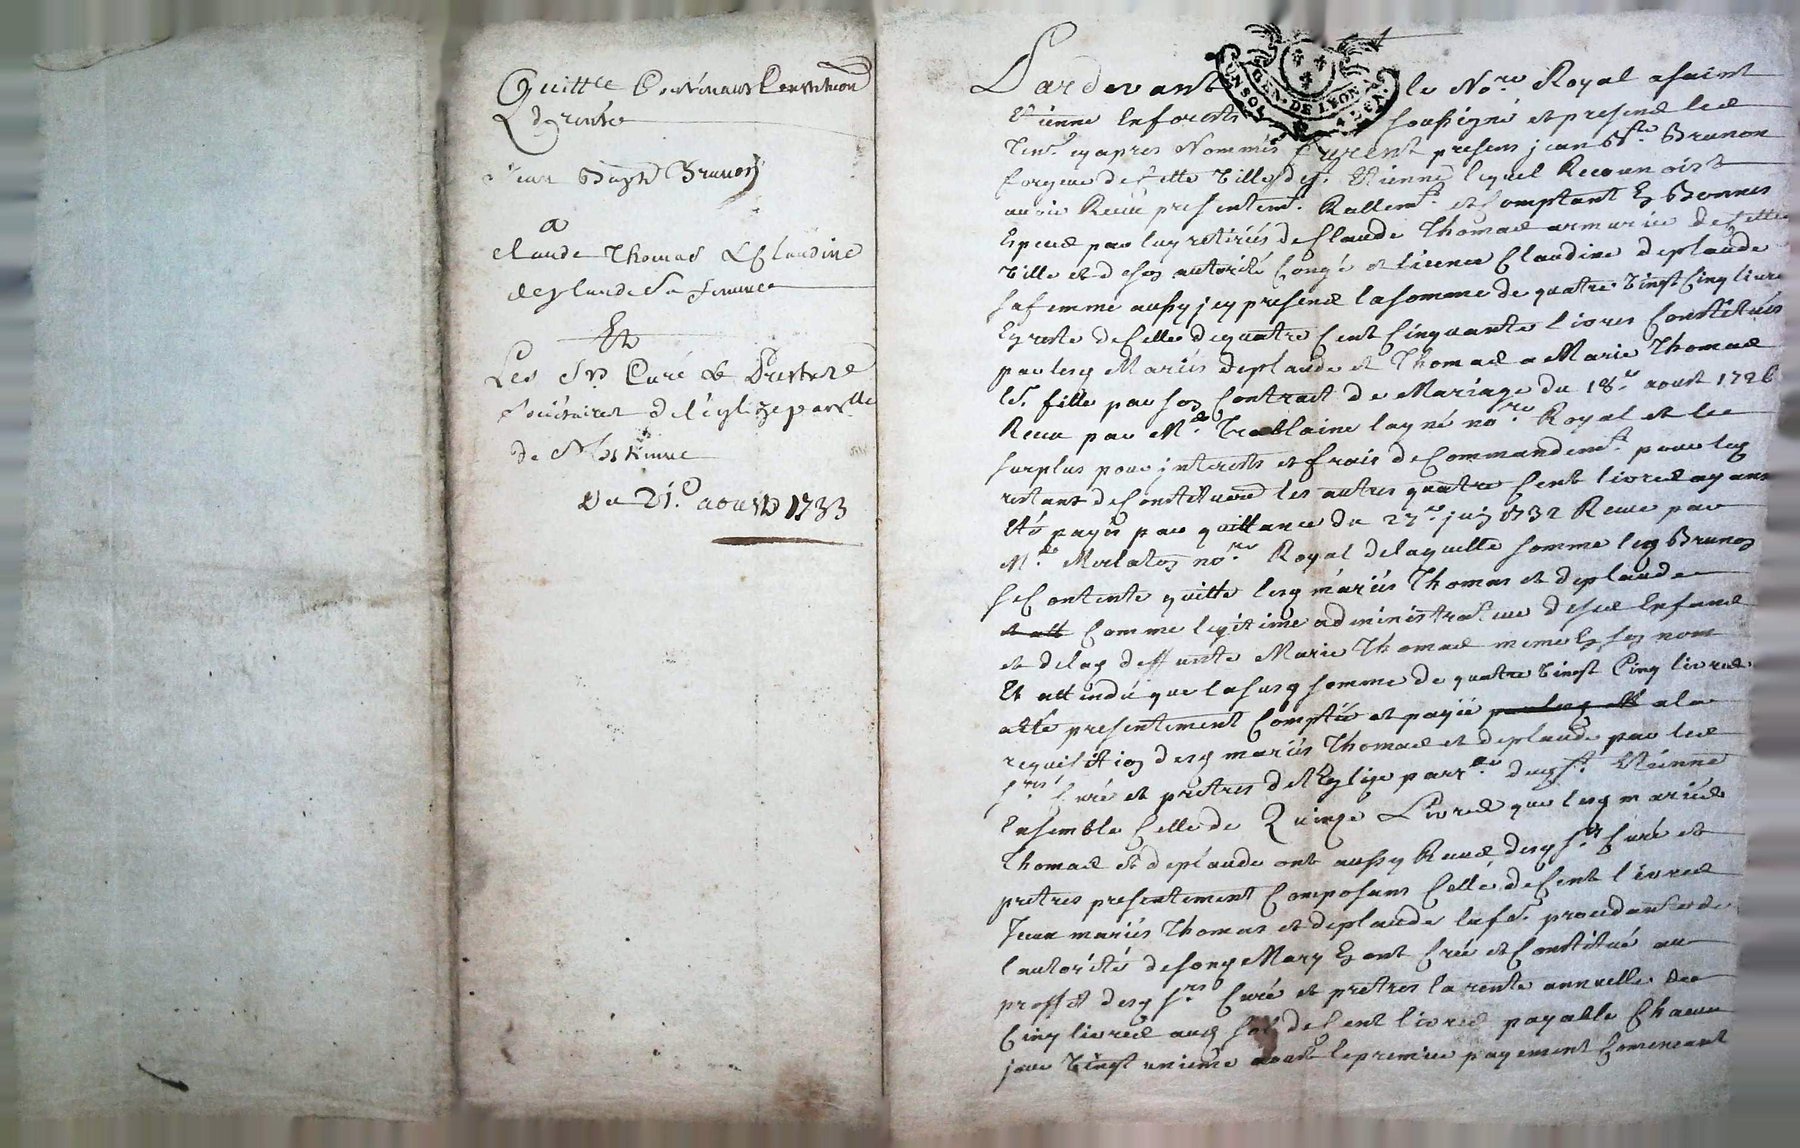 Quittce Portant Constitution
de rente
Jean Baptte Brunon
a
Claude Thomas & Claudine
deplaude Sa femme
Et
Les Srs Curé & Prestres
Societaires de l'eglize parrlle
de St Estienne
Du 21e aoust 1733
GEN. DE LYON
Pardevant le Nore Royal a saint
Etienne en forests soussigné et presens les
tem. cy apres Nommés furent presens jean Bte Brunon
forgeur de cette ville dud St. Etienne lequel Reconnoist
avoir Receu presentemt. Rallemt. et Comptant En Bonnes
Especes par luy retirés de Claude Thomas armurier de cette
Ville et de son autorité Congé et licence Claudine deplaude
sa femme aussy icy presens la somme de quatre vingt Cinq livres
En reste de Celle de quatre Cent Cinquante livres Constitués
par lesd Mariés deplaude et Thomas a Marie Thomas
leur fille par son Contract de Mariage du 18e. aoust 1726
Receu par Me. Trablaine layné nore. Royal et le
surplus pour interests et frais de Commandemt. pour led
restant de Constitution les autres quatre Cent livres ayant
Eté payés par quittance du 27e. juin 1732 Receue par
Me. nore. Royal de laquelle somme led Brunon
se Contente quitte lesd mariés Thomas et deplaude
Comme legitime administrateur de ses Enfans
et de lad deffunte Marie Thomas meme En son nom
Et attendu que la susd somme de quatre vingt Cinq livres
a été presentement Comptée et payée a la
requisition desd mariés Thomas et deplaude par les
srs. Curé et pretres de l'Eglise parrlle. dud St. Etienne
Ensemble Celle de Quinze Livres que lesd mariés
Thomas et deplaude ont aussy Receus desd srs Curé et
pretres presentement Composant Celle de Cent livres
Iceux mariés Thomas et deplaude lad fe. procedant de
l'autorité de sond Mary En ont Créé et Constitué au
proffit desd srs Curé et pretres la rente annuelle de
Cinq livres aud sort de Cent livres payable Chacun
jour vingt unieme aoust le premier payement Comencant